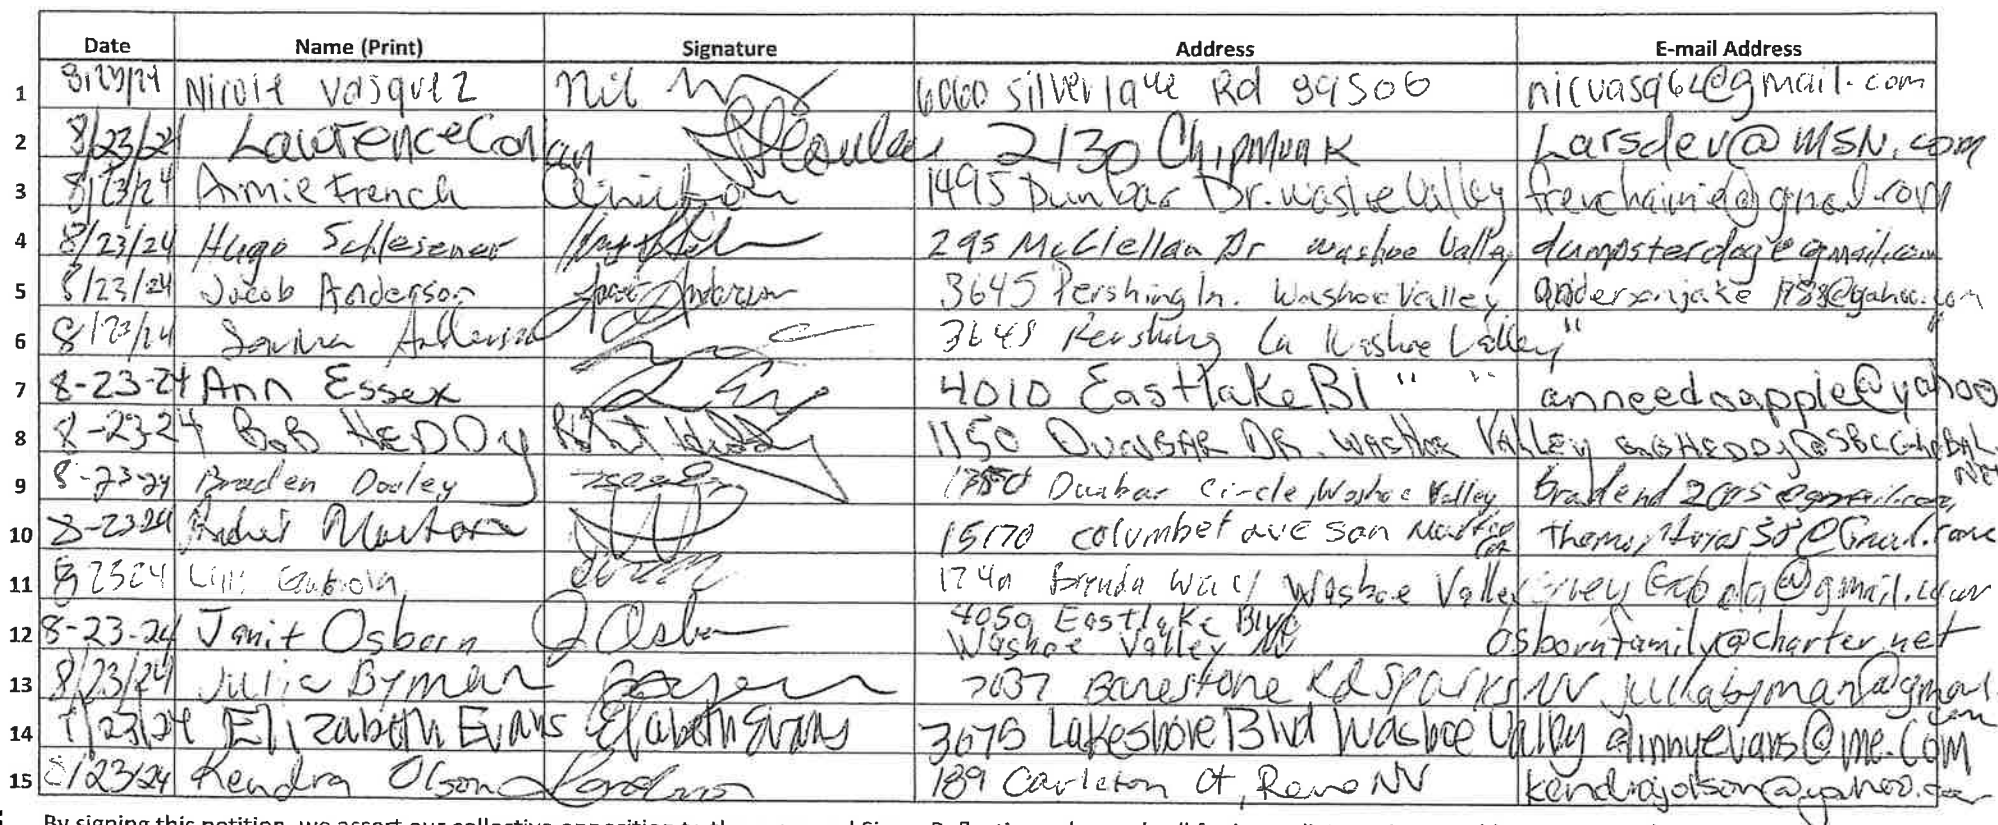 Date Name (Print) Signature Address E-mail Address
1 8/23/24 Nicole Vasquez 6060 Silverlake Rd 89506 nicvasq64@gmail.com
2 8/23/24 Lawrence Conlan 2130 Chipmunk Larsdev@MSN.com
3 8/23/24 Aimie French 1495 Dunbar Dr. Washoe Valley frenchaimie@gmail.com
4 8/23/24 Hugo Schlesener 295 McClellan Dr Washoe Valley dumpsterdog@gmail.com
5 8/23/24 Jacob Anderson Jacob Anderson 3645 Pershing ln. Washoe Valley andersonjake1988@yahoo.com
6 8/23/24 3645 Pershing Ln Washoe Valley " "
7 8-23-24 Ann Essex 4010 Eastlake Bl " " anneedsapple@yahoo
8 8-23-24 BOB HEDDY 1150 DUNBAR DR. WASHOE VALLEY BOBHEDDY@SBCGLOBAL.
NET
9 8-23-24 Braden Dooley Dunbar Circle, Washoe Valley bradend2005@gmail.com
10 8-23-24 15170 columbet ave san Martin
CA
11 8 23 24 1740 Brenda Way Washoe Valley @gmail.com
12 8-23-24 Janit Osborn J Osborn 4050 Eastlake Blvd
Washoe Valley NV osbornfamily@charter.net
13 8/23/24 Julia Byman 7037 Barestone Rd Sparks NV juliabyman@gmail.
com
14 8/23/24 Elizabeth Evans Elizabeth Evans 3675 Lakeshore Blvd Washoe Valley ginnyevans@me.com
15 8/23/24 Kendra Olson 189 Carleton Ct, Reno NV kendrajolson@yahoo.com
By signing this petition, we assert our collective opposition to the